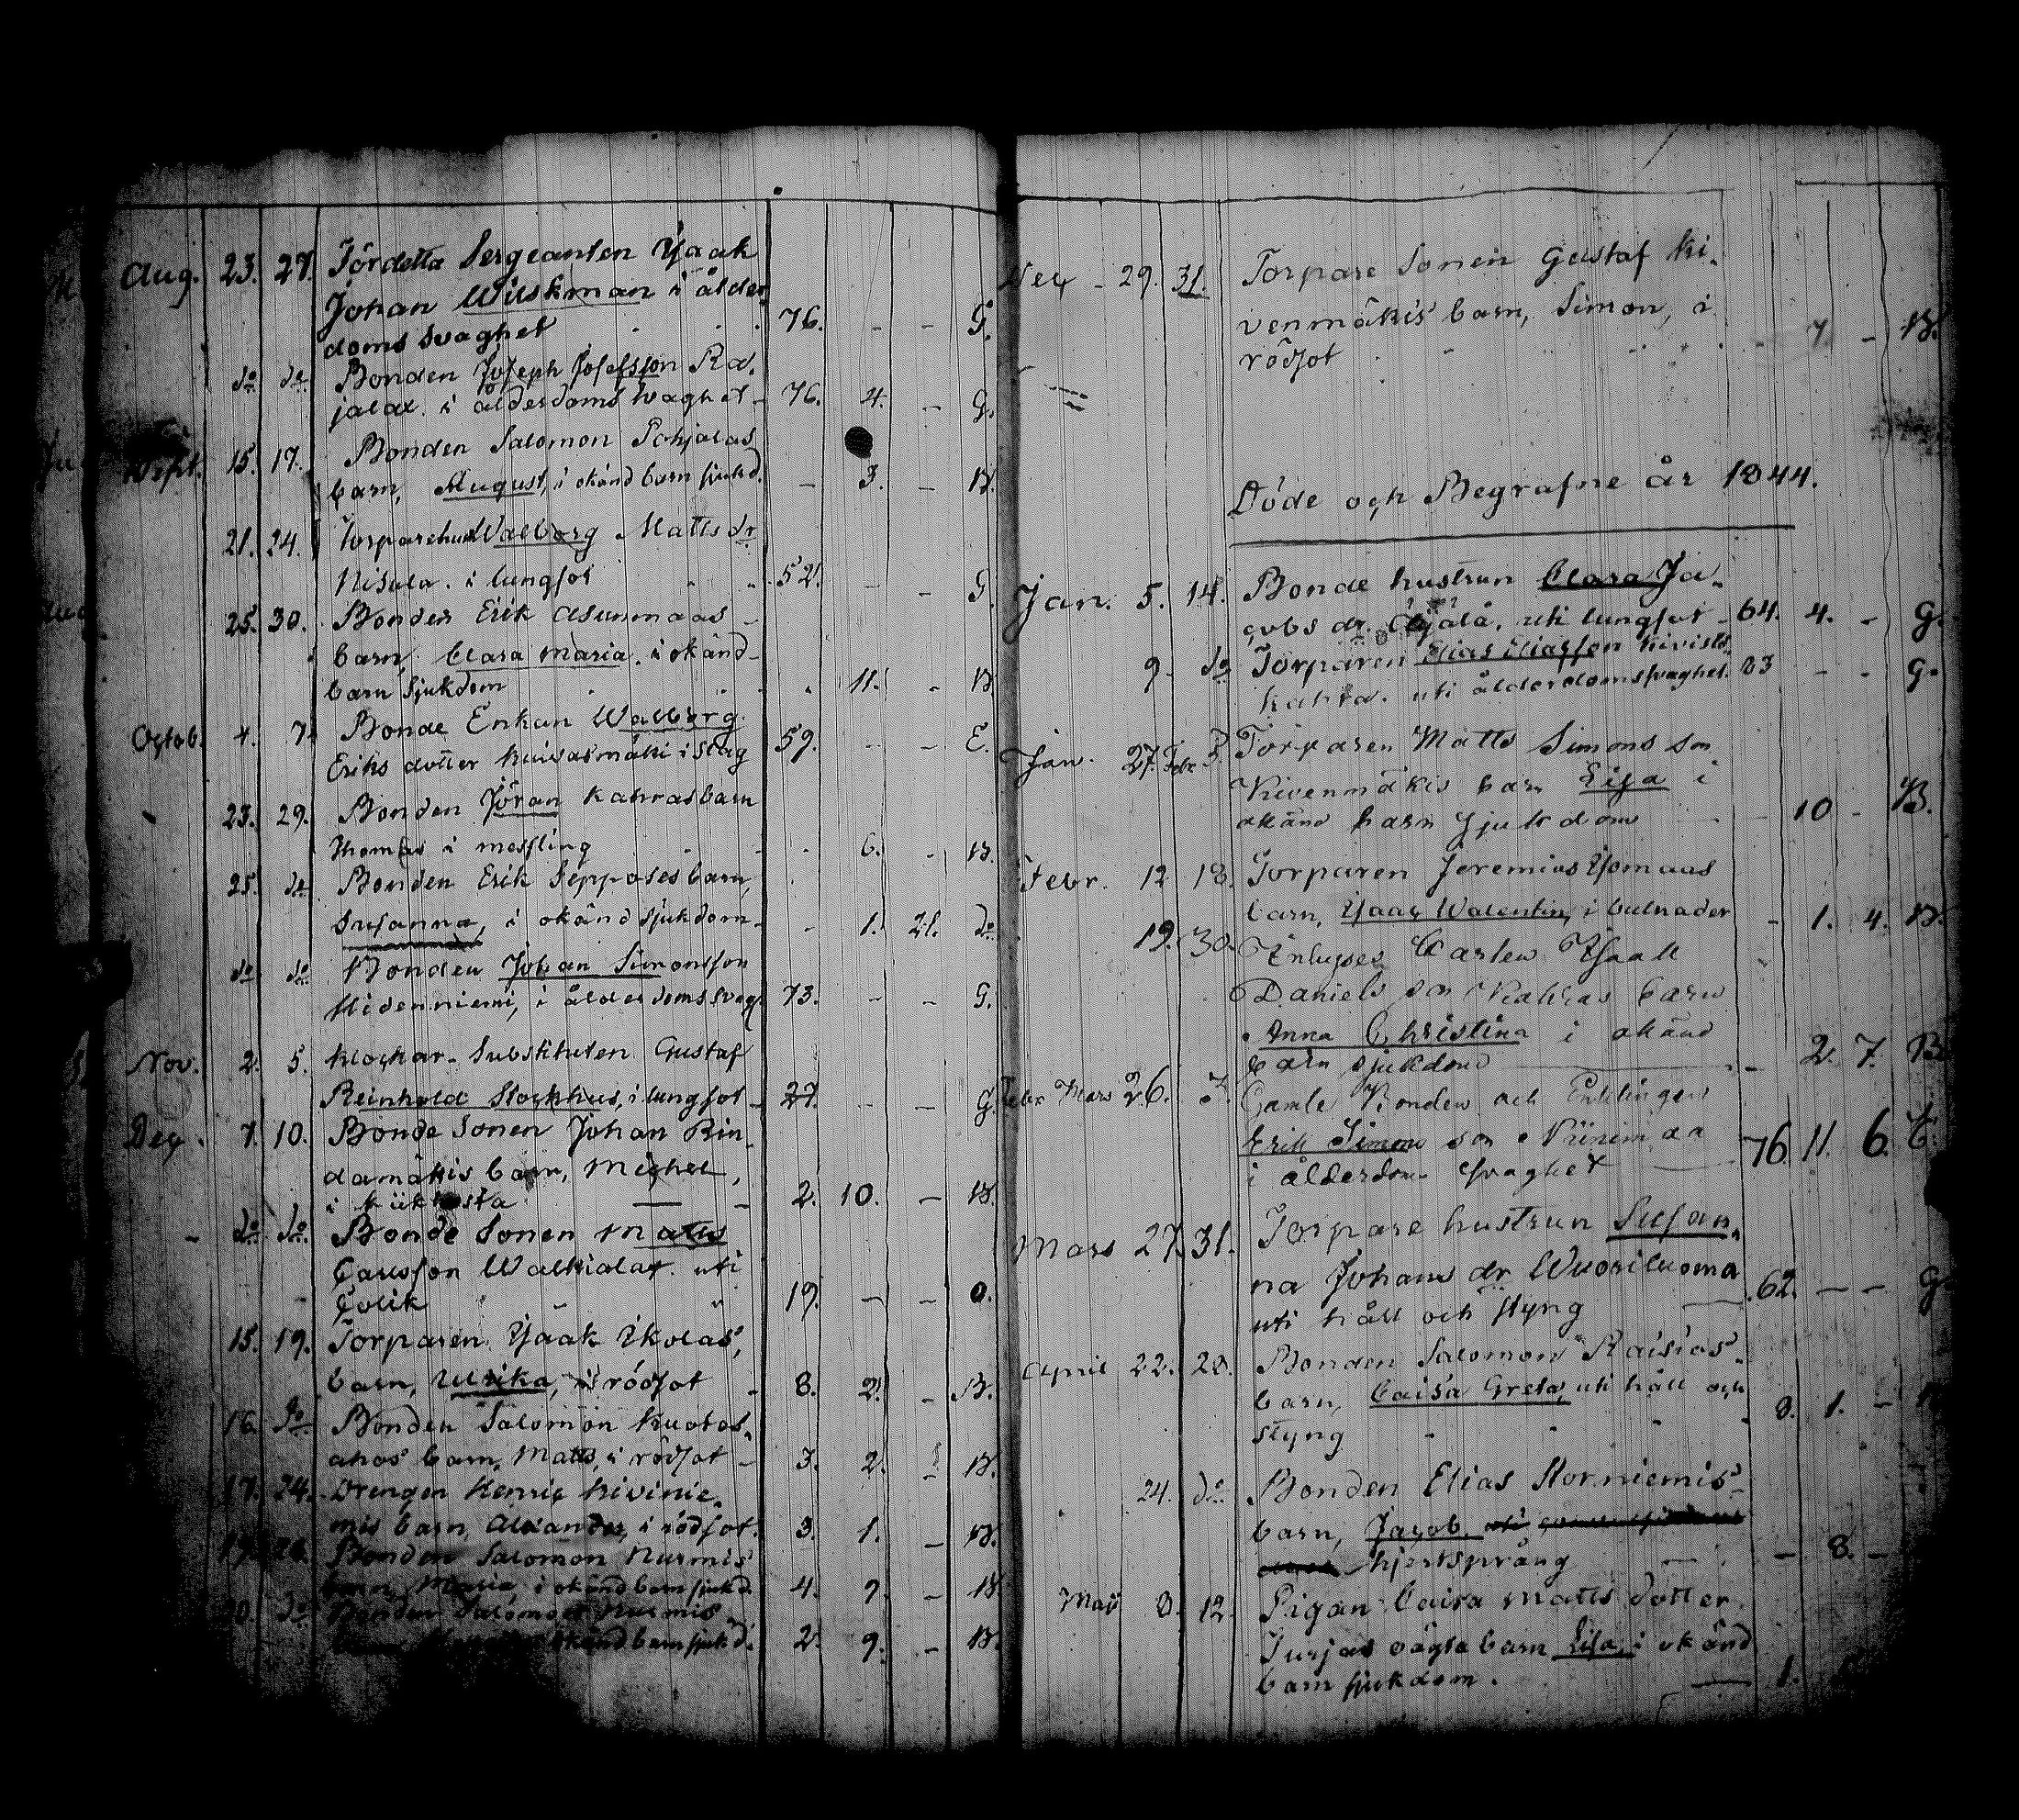 Aug. 23. 27. Fördetta Sergeanten Isaak
Johan Wilskman i ålder
doms svaghet 76. - - G.
do do Bonden Joseph Josefsson Ra.
jalax. i ålderdoms svaghet - 76. 4. - G.
Sept. 15. 17. Bonden Salomon Pohjalas
barn, August, i okänd barn sjukd. - 3. - B.
21. 24. Torparehust Walborg Matts dr
Nisula. i lungsot 52. - - G.
25. 30. Bonden Erik Asunmaas
barn, Clara Maria. i okänd
barn sjukdom 11. - B.
Octob. 4. 7. Bonde Enkan Walborg
Eriks dotter i slag 59. - - E.
23. 29. Bonden Jöran Kahras barn
Thomas i messling 6. - B.
25. do Bonden Erik Seppäses barn,
Susanna, i okänd sjukdom - 1. 21. do
do do Bonden Johan Simonsson
Hidenniemi, i ålderdoms svagh 73. - - G.
Nov. 2. 5. Klockar-Substituten Gustaf
Reinhold Stockhus, i lungsot - 27. - - G.
Dec. 7. 10. Bonde Sonen Johan Rin
damäkis barn, Michel,
i kikhosta 2. 10. - B.
do do Bonde Sonen Matts
Carlsson uti
Colik 19. - - O.
15. 19. Torparen Isaak Ikolas,
barn, Ulrika, i rödsot - 8. 2. - B.
16. do Bonden Salomon
ahos barn, Matts, i rödsot - 3. 2. - B.
17. 24. Drengen Henric Kivinie
mis barn, Alexander, i rödsot. 3. 1. - B.
Bonden Salomon Nurmis
barn, Maria i okänd barn sjukd. 4. 9. - B.
20. do Bonden Salomon Nurmis
okänd barn sjukd. 2. 9. - B.
Dec - 29. 31. Torpare Sonen Gustaf Ki.
venmäkis barn, Simon, i
rödsot - 7. - B.
Döde och Begrafne år 1844.
Jan. 5. 14. Bonde hustrun Clara Ja.
cobs dr. uti lungsot - 64. 4. - G.
9. do Torparen Elias Eliasson Kivistö
uti ålderdoms svaghet. 83 - - G.
Jan. 27. Febr 3. Torparen Matts Simons son
Kivenmäkis barn Lisa i
okänd barn sjukdom - 10 - B.
Febr. 12 18. Torparen Jeremias Isomaas
barn, Isaac Walentin, i bulnader - 1. 4. B.
19. 30. Inhyses Karlen Isaak
Daniels son Kahras barn
Anna Christina i okänd
barn sjukdom - 2. 7. B
Febr Mars 26. 3. Gamle Bonden och Enklingen
Erik Simons son Niinimaa
i ålderdoms svaghet 76. 11. 6. E.
Mars 27. 31. Torpare hustrun Susan.
na Johans dr. Wuoriluoma
uti håll och styng 62. - - G
April 22. 28. Bonden Salomon Raisias
barn, Caisa Greta, uti håll och
styng 8. 1. -
24. do Bonden Elias Storniemis
barn, Jacob.
hjertsprång - 8. -
Maij 8. 12. Pigan Caisa Matts dotter
Turjas oägta barn Lisa, i okänd
barn sjukdom. - 1.